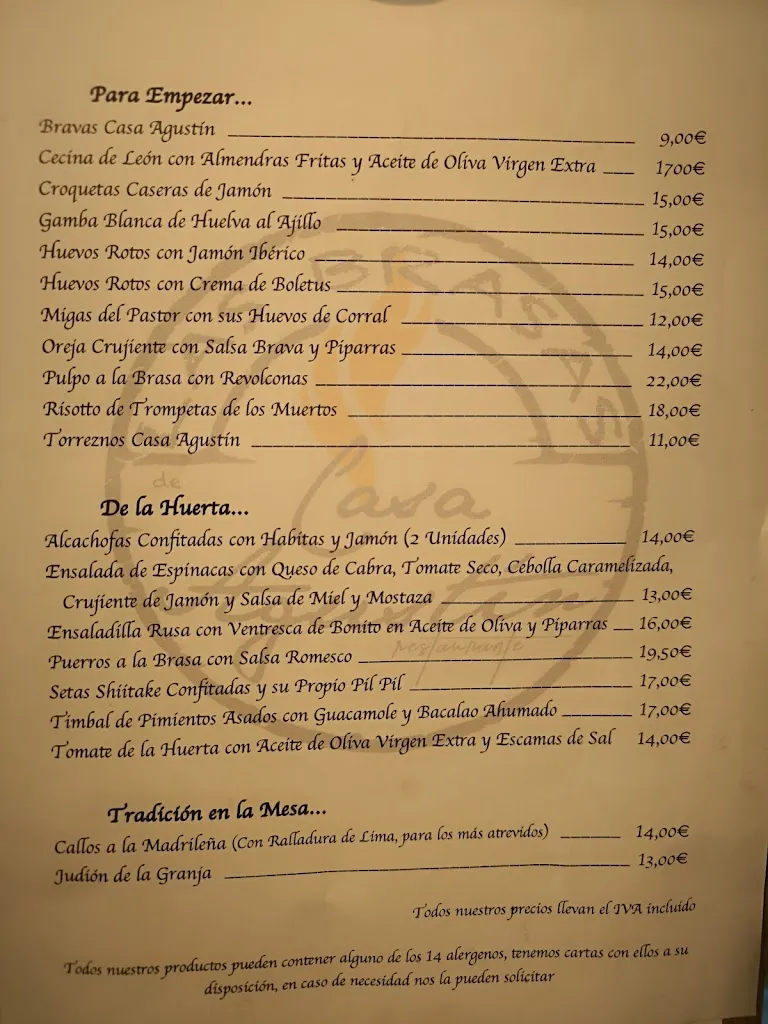 Para Empezar...
Bravas Casa Agustín 9,00€
Cecina de León con Almendras Fritas y Aceite de Oliva Virgen Extra 1700€
Croquetas Caseras de Jamón 15,00€
Gamba Blanca de Huelva al Ajillo 15,00€
Huevos Rotos con Jamón Ibérico 14,00€
Huevos Rotos con Crema de Boletus 15,00€
Migas del Pastor con sus Huevos de Corral 12,00€
Oreja Crujiente con Salsa Brava y Piparras 14,00€
Pulpo a la Brasa con Revolconas 22,00€
Risotto de Trompetas de los Muertos 18,00€
Torreznos Casa Agustín 11,00€
De la Huerta...
Alcachofas Confitadas con Habitas y Jamón (2 Unidades) 14,00€
Ensalada de Espinacas con Queso de Cabra, Tomate Seco, Cebolla Caramelizada,
Crujiente de Jamón y Salsa de Miel y Mostaza 13,00€
Ensaladilla Rusa con Ventresca de Bonito en Aceite de Oliva y Piparras 16,00€
Puerros a la Brasa con Salsa Romesco 19,50€
Setas Shiitake Confitadas y su Propio Pil Pil 17,00€
Timbal de Pimientos Asados con Guacamole y Bacalao Ahumado 17,00€
Tomate de la Huerta con Aceite de Oliva Virgen Extra y Escamas de Sal 14,00€
Tradición en la Mesa...
Callos a la Madrileña (Con Ralladura de Lima, para los más atrevidos) 14,00€
Judión de la Granja 13,00€
Todos nuestros precios llevan el IVA incluido
Todos nuestros productos pueden contener alguno de los 14 alergenos, tenemos cartas con ellos a su
disposición, en caso de necesidad nos la pueden solicitar
LAS BRASAS
de
Casa
Agustín
restaurante